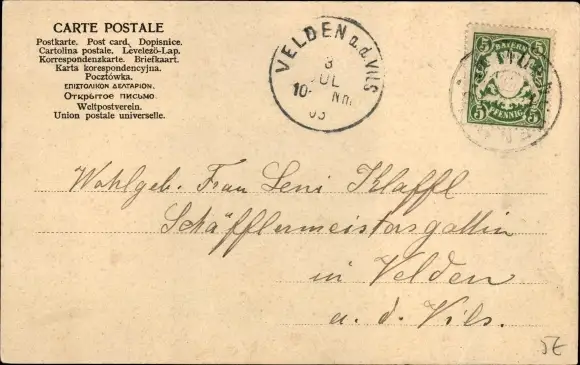 CARTE POSTALE
Postkarte. Post card. Dopisnice.
Cartolina postale. Levelező-Lap.
Korrespondenzkarte. Briefkaart.
Karta korespondencyjna.
Pocztówka.
ΕΠΙΣΤΟΛΙΚΟΝ ΔΕΛΤΑΡΙΟΝ.
Открытое письмо.
Weltpostverein.
Union postale universelle.
VELDEN a.d. VILS
8
JUL
10- Nm
03
5 BAYERN 5
5 PFENNIG 5
Wohlgeb. Frau Leni Klaffl
Schäfflermeistersgattin
in Velden
a. d. Vils.